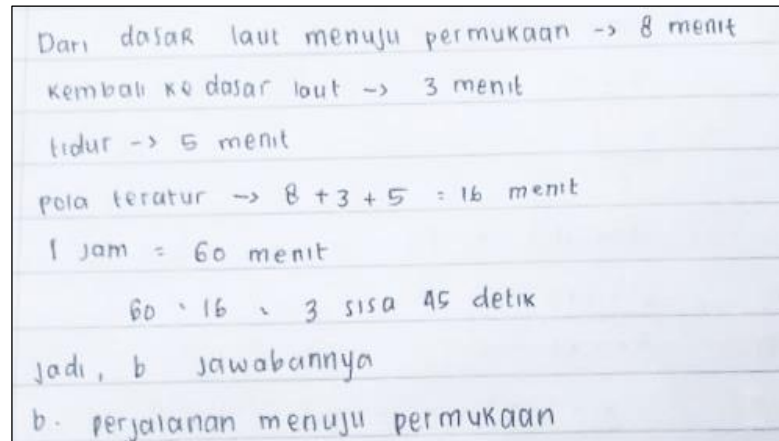 Dari dasaR laut menuju permukaan -> 8 menit
Kembali ke dasar laut -> 3 menit
tidur -> 5 menit
pola teratur -> 8 + 3 + 5 = 16 menit
1 jam = 60 menit
60 : 16 = 3 sisa 45 detik
Jadi, b Jawabannya
b. perjalanan menuju permukaan